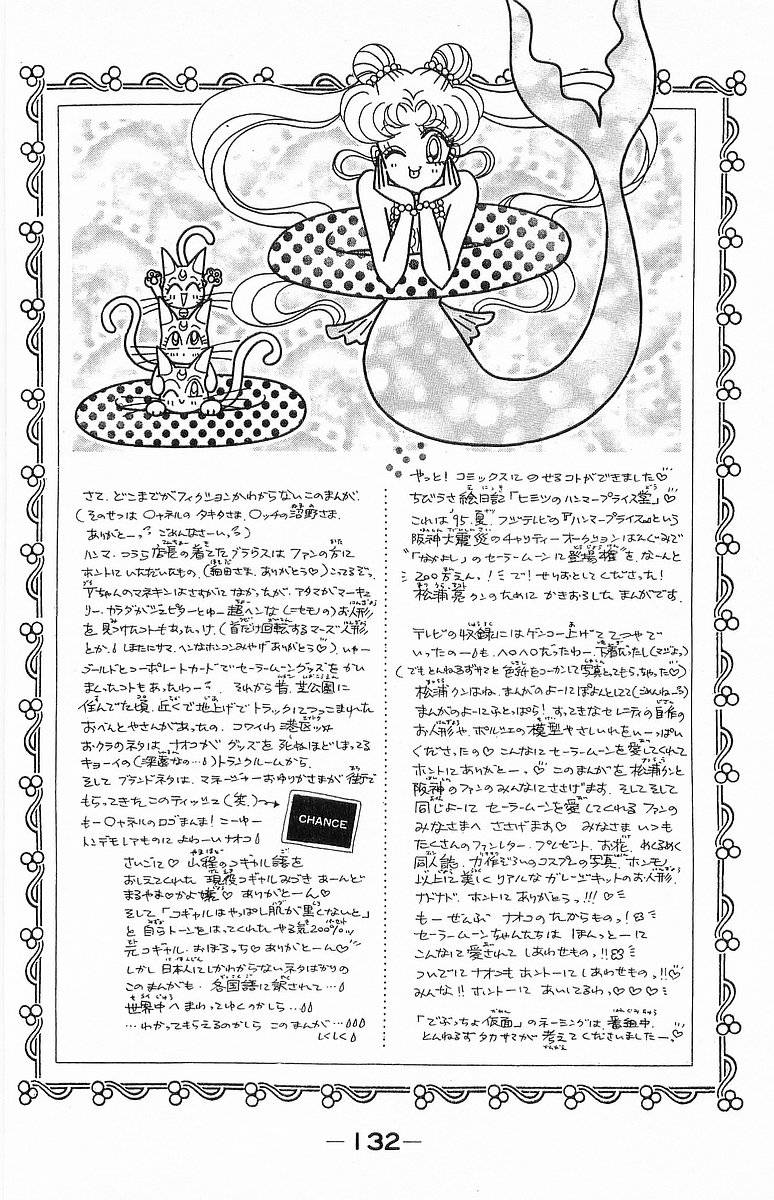 やっと！コミックスにのせるコトができました♡
ちびうさ絵日記「ヒミツのハンマープライス堂」♡
これは'95.夏.フジテレビの『ハンマープライス』という
阪神大震災のチャリティーオークションばんぐみで
"「なかよし」のセーラームーンに登場権"を、なーんと
200万えん。！で！せりおとしてくださった！
松浦亮クンのために かきおろした まんがです。
テレビの収録にはゲンコー上げて てつやで
いったのーも、ヘロヘロだったわ。下着だったし
(でもとんねるずサマと色紙をコーカンして写真とってもらっちゃった♡)
松浦クンはね、まんがのよーに
まんがのよーにふとっぱら！すってきなセレニティの自作の
お人形や、ポルシェの模型やさしいれをいーっぱい
くださったの♡こんなにセーラームーンを愛してくれて
ホントにありがとーっ♡このまんがを松浦クンと
阪神のファンのみんなにささげます。そしてそして
同じよーに セーラームーンを愛してくれる ファンの
みなさまへ ささげます♡ みなさま いつも
たくさんのファンレター、プレゼント、お花、めくるめく
同人誌、力作ぞろいのコスプレの写真、ホンモノ
以上に美しくリアルな ガレージキットのお人形、
ナドナド、ホントにありがとうっ!!!♡
もーぜんぶ ナオコのたからものっ！
セーラームーンちゃんたちは ほんっとーに
こんなに愛されて しあわせものっ!!
ついでにナオコも ホントーに しあわせものっ!!♡
みんな!! ホントーに あいしてるわっ♡♡♡♡
「でぶっちょ仮面」のネーミングは、番組中、
とんねるずタカサマが 考えて くださいましたーっ
さて、どこまでがフィクションかわからないこのまんが、
(そのせつは ○ャネルの タキタさま、○ッチの沼野さま、
ありがとーっ ごめんなさーい)
ハンマ・つうら店長の着てたブラウスは ファンの方に
ホントにいただいたもの。(細田さま、ありがとう♡)こってるぞっ
Vちゃんのマネキンはさすがに なかったが、アタマがマーキュ
リー、カラダがジュピターとゆー超ヘンな(ニセモノの)お人形
を見つけたコトもあったっけ。(首だけ回転するマーズ人形
とか。ほたにサマ、ヘンなホンコンみやげありがとう♡)いゆー
ゴールドとコーポレートカードでセーラームーングッズをかい
まくったコトもあったわーっ それから昔、芝公園に
住んでた頃、近くで地上げでトラックにつっこまれた
おべんとやさんがあったの。コワイわ 港区ッ
おクラのネタは、ナオコが グッズを 死ぬほどしまってる
キョーイの(深夜なの…)トランクルームから。
そしてブランドネタは、マネージャーおゆりがさまが街で
もらってきたこのティッシュ(笑)→
CHANCE
もー○ャネルのロゴまんま！こーゆー
トンデモしてものに よわーいナオコ
さいごに♡ 山程のコギャル語を
おしえてくれた 現役コギャルみづき あーんど
まるやま♡かよ嬢♡ ありがとーん♡
そして「コギャルはやっぱし肌が黒くないと」
と 自らトーンをはってくれた やる気200%の
元コギャル・おぼろっち♡ありがとーん♡
しかし 日本人にしかわからないネタばかりの
このまんがも、各国語に訳されて…
世界中へまわってゆくのかしら…
…わかってもらえるのかしら このまんが…
しくしく
—132—